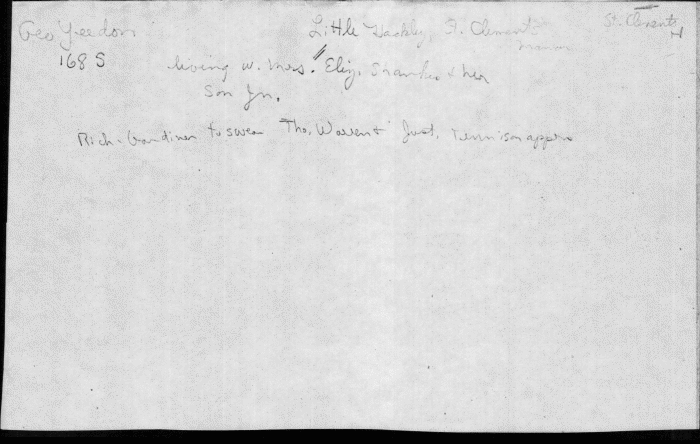 Geo Yeedon Little Hackley, St. Clement St. Clements H
Manor
1685 living w. Mrs. Eliz. & her
Son Jn.
Rich. Gardiner to swear Tho. Warren & Just. Tennison apprs